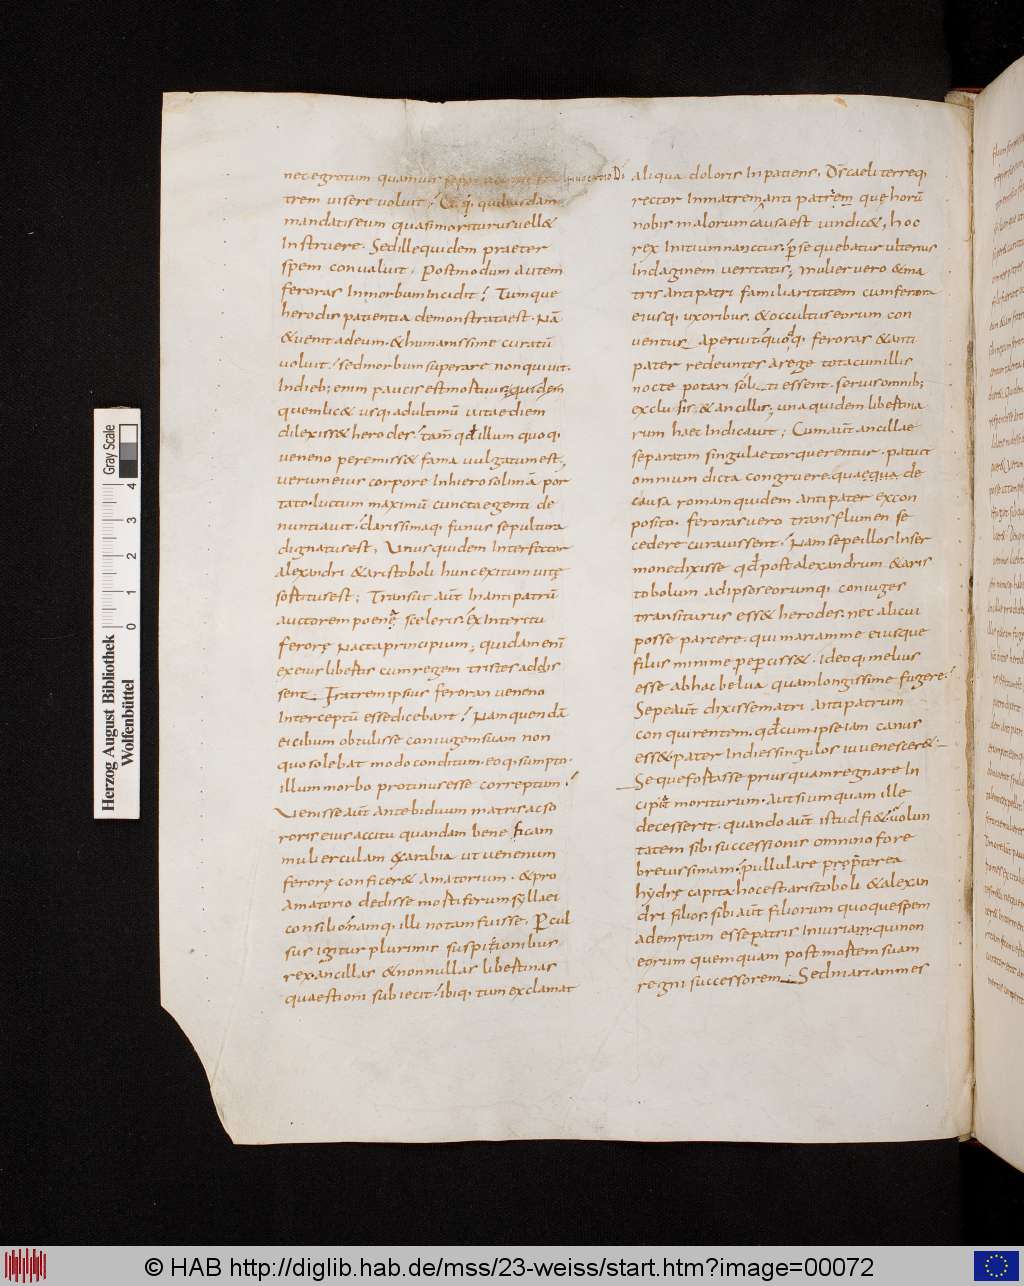 nec egrotum quamuis
trem uisere uoluit; quibusdam
mandatiseum quasimoriturusuell&
Instruere. Sedillequidem praeter
spem conualuit. Postmodum autem
feroras Inmorbumincidit! Tumque
herodis patientia demonstrataest. Nā
&uenit adeum. & humanissime curatū
uoluit! sedmorbumsuperare nonquiuit.
Indieb; enim paucis estmortuus; quidem
quemlic& usq; adultimū uitaediem
dilexiss& herodes! tam̄ qđ illum quoq;
ueneno peremiss& fama uulgatumest;
uerumeius corpore Inhierosolimā por
tato. luctum maximū cunctaegenti de
nuntiauit! clarissimaq; funus sepultura
dignatusest. Unusquidem Interfector
alexandri &aristoboli huncexitum uitę
sortitusest; Transiit aūt Inantipatrū
auctorem poenę sceleris. Ex Interitu
ferorę Nactaprincipium; quidam enī
exeius libertis cumregem tristes adis
sent. fratremipsius feroran ueneno
Interceptū essedicebant! Namquendā
eicibum obtulisse coniugemsuam non
quosolebat modoconditum. eoq; sumpto.
illummorbo protinusesse correptum!
Uenisseaūt antebiduum matrisacso
roris eius accitu quandam beneficam
mulierculam exarabia ut uenenum
ferorę conficer& amatorium. &pro
amatorio dedisse mortiferumsyllaei
consilio! namq; illi notamfuisse. Percul
sus igitur plurimis suspitionibus
rexancillas &nonnullas libertinas
quaestioni subiecit! ibiq; tumexclamat
aliqua doloris Inpatiens, Dīs caeli terręq;
rector Inmatremanti patrem que horū
nobis malorum causaest uindic&, hoc
rex Initiumnanctus. persequebatur ulterius
Indaginem ueritatis; mulieruero &ma
tris antipatri familiaritatem cumferora
eiusq; uxoribus. &occultus eorum con
uentus aperuit! quodq; feroras &anti
pater redeuntes arege totacumillis
nocte potari soliti essent. seruisomnib;
exclusis. & ancillis; unaquidem liberina
rum haec Indicauit; Cumaūt ancillae
separatim singulae torquerentur. patuit
omnium dicta congruere. quaequa de
causa romam quidem antipater excon
posito. ferorasuero transflumen se
cedere curauissent! Nam sepeillos Inter
monedixisse qđ post alexandrum &aris
tobolum adipsos eorumq; coniuges
transiturus ess& herodes. nec alicui
posse parcere. quimariamme eiusque
filiis minime peperciss&. Ideoq; melius
esse abhacbelua quamlongissime fugere!
Sepeaūt dixissematri antipatrum
conquirentem. qđcum ipse iam canus
ess& pater Indiessingulos iuuenescer&.
Sequefortasse priusquamregnare In
cipiat moriturum. autsiumquam ille
decesserit. quando aūt istud fi&! uolun
tatem sibi successionis omnino fore
breuissimam! pullulare propterea
hydrę capita. hocest. aristoboli &alexan
dri filios. sibi aūt filiorum quoquespem
ademptam esse patris Iniuriam. quinon
eorum quemquam post mortem suam
regni successorem. Sedmariammes
Herzog August Bibliothek
Wolfenbüttel
Gray Scale
0 1 2 3 4
© HAB http://diglib.hab.de/mss/23-weiss/start.htm?image=00072